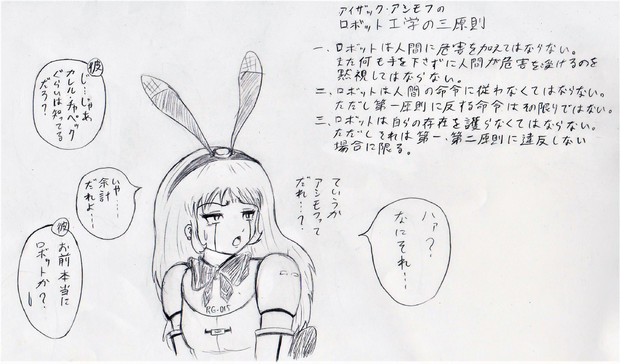 アイザック・アシモフの
ロボット工学の三原則
一、ロボットは人間に危害を加えてはならない。
また何も手を下さずに人間が危害を受けるのを
黙視してはならない。
二、ロボットは人間の命令に従わなくてはならない。
ただし第一原則に反する命令はその限りではない。
三、ロボットは自らの存在を護らなくてはならない。
ただしそれは第一、第二原則に違反しない
場合に限る。
ハァ?
なにそれ…
ていうか
アシモフって
だれ…?
彼
じ…じゃあ
カレル・チャペック
ぐらいは知ってる
だろ?
いや…
余計
だれよ…
彼
お前本当に
ロボットか?
RG-015